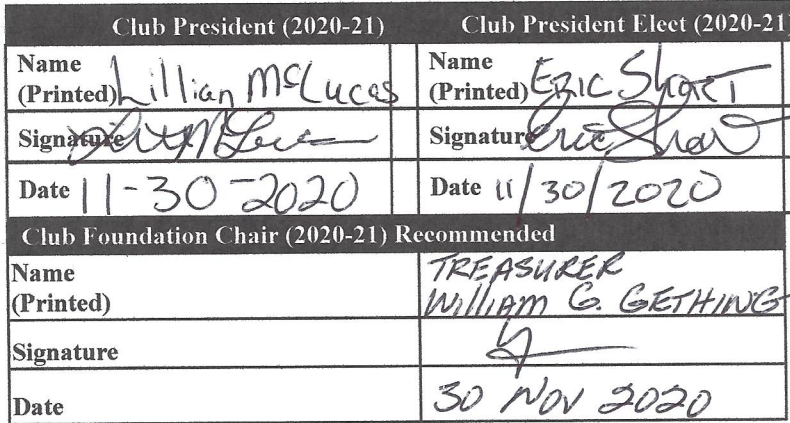 Club President (2020-21) Club President Elect (2020-21)
Name Name
(Printed) Lillian McLucas (Printed) ERIC SHORT
Signature Signature Eric Short
Date 11-30-2020 Date 11/30/2020
Club Foundation Chair (2020-21) Recommended
Name TREASURER
(Printed) William G. GETHING
Signature
Date 30 Nov 2020